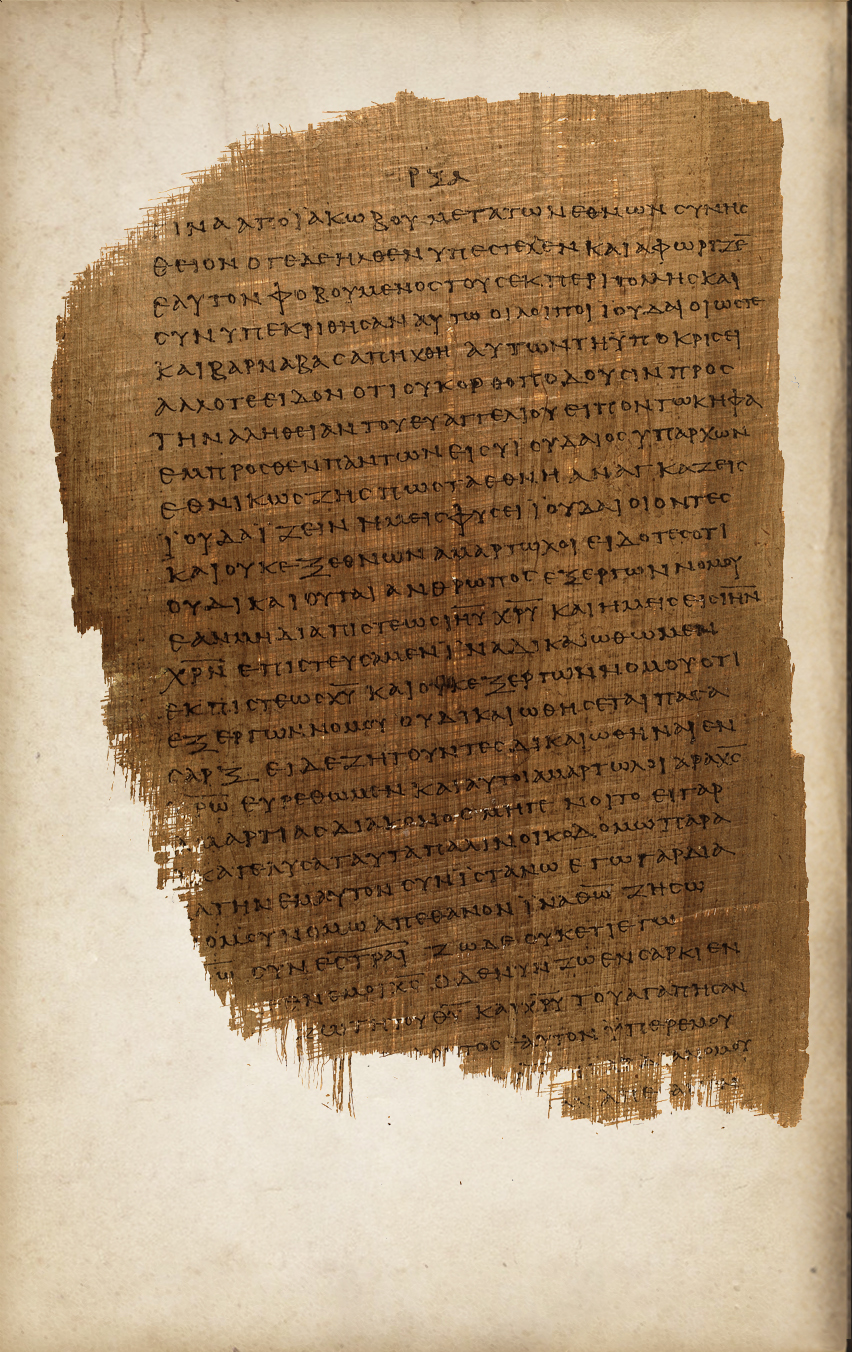 ΡΞΑ
ΙΝΑ ΑΠΟ ΪΑΚΩΒΟΥ ΜΕΤΑ ΤΩΝ ΕΘΝΩΝ ϹΥΝΗϹ
ΘΕΙΟΝ ΟΤΕ ΔΕ ΗΛΘΕΝ ΥΠΕϹΤΕΛΛΕΝ ΚΑΙ ΑΦΩΡΙΖΕ̅
ΕΑΥΤΟΝ ΦΟΒΟΥΜΕΝΟϹ ΤΟΥϹ ΕΚ ΠΕΡΙΤΟΜΗϹ ΚΑΙ
ϹΥΝΥΠΕΚΡΙΘΗϹΑΝ ΑΥΤΩ ΟΙ ΛΟΙΠΟΙ ΙΟΥΔΑΙΟΙ ΩϹΤΕ
ΚΑΙ ΒΑΡΝΑΒΑϹ ΑΠΗΧΘΗ ΑΥΤΩΝ ΤΗ ΫΠΟΚΡΙϹΕΙ
ΑΛΛ ΟΤΕ ΕΙΔΟΝ ΟΤΙ ΟΥΚ ΟΡΘΟΠΟΔΟΥϹΙΝ ΠΡΟϹ
ΤΗΝ ΑΛΗΘΕΙΑΝ ΤΟΥ ΕΥΑΓΓΕΛΙΟΥ ΕΙΠΟΝ ΤΩ ΚΗΦΑ
ΕΜΠΡΟϹΘΕΝ ΠΑΝΤΩΝ ΕΙ ϹΥ ΪΟΥΔΑΙΟϹ ΥΠΑΡΧΩΝ
ΕΘΝΙΚΩϹ ΖΗϹ ΠΩϹ ΤΑ ΕΘΝΗ ΑΝΑΓΚΑΖΕΙϹ
ΪΟΥΔΑΪΖΕΙΝ ΗΜΕΙϹ ΦΥϹΕΙ ΪΟΥΔΑΙΟΙ ΟΝΤΕϹ
ΚΑΙ ΟΥΚ ΕΞ ΕΘΝΩΝ ΑΜΑΡΤΩΛΟΙ ΕΙΔΟΤΕϹ ΟΤΙ
ΟΥ ΔΙΚΑΙΟΥΤΑΙ ΑΝΘΡΩΠΟϹ ΕΞ ΕΡΓΩΝ ΝΟΜΟΥ
ΕΑΝ ΜΗ ΔΙΑ ΠΙϹΤΕΩϹ Ι̅Η̅Υ̅ Χ̅Ρ̅Υ̅ ΚΑΙ ΗΜΕΙϹ ΕΙϹ Ι̅Η̅Ν̅
Χ̅Ρ̅Ν̅ ΕΠΙϹΤΕΥϹΑΜΕΝ ΪΝΑ ΔΙΚΑΙΩΘΩΜΕΝ
ΕΚ ΠΙϹΤΕΩϹ Χ̅Υ̅ ΚΑΙ ΟΥΚ ΕΞ ΕΡΓΩΝ ΝΟΜΟΥ ΟΤΙ
ΕΞ ΕΡΓΩΝ ΝΟΜΟΥ ΟΥ ΔΙΚΑΙΩΘΗϹΕΤΑΙ ΠΑϹΑ
ϹΑΡΞ ΕΙ ΔΕ ΖΗΤΟΥΝΤΕϹ ΔΙΚΑΙΩΘΗΝΑΙ ΕΝ
Ρ̅Ω̅ ΕΥΡΕΘΩΜΕΝ ΚΑΙ ΑΥΤΟΙ ΑΜΑΡΤΩΛΟΙ ΑΡΑ Χ̅Ϲ̅
ΜΑΡΤΙΑϹ ΔΙΑΚΟΝΟϹ ΜΗ ΓΕΝΟΙΤΟ ΕΙ ΓΑΡ
ΚΑΤΕΛΥϹΑ ΤΑΥΤΑ ΠΑΛΙΝ ΟΙΚΟΔΟΜΩ ΠΑΡΑ
ΑΤΗΝ ΕΜΑΥΤΟΝ ϹΥΝΪϹΤΑΝΩ ΕΓΩ ΓΑΡ ΔΙΑ
ΟΜΟΥ ΝΟΜΩ ΑΠΕΘΑΝΟΝ ΪΝΑ Θ̅Ω̅ ΖΗϹΩ
Ω̅ ϹΥΝΕ̅Ϲ̅Τ̅Ρ̅ΑΙ ΖΩ ΔΕ ΟΥΚΕΤΙ ΕΓΩ
ΕΝ ΕΜΟΙ Χ̅Ϲ̅ Ο ΔΕ ΝΥΝ ΖΩ ΕΝ ϹΑΡΚΙ ΕΝ
ΤΗ ΤΟΥ Θ̅Υ̅ ΚΑΙ Χ̅Ρ̅Υ̅ ΤΟΥ ΑΓΑΠΗϹΑΝ
ΤΟϹ ΑΥΤΟΝ ΫΠΕΡ ΕΜΟΥ